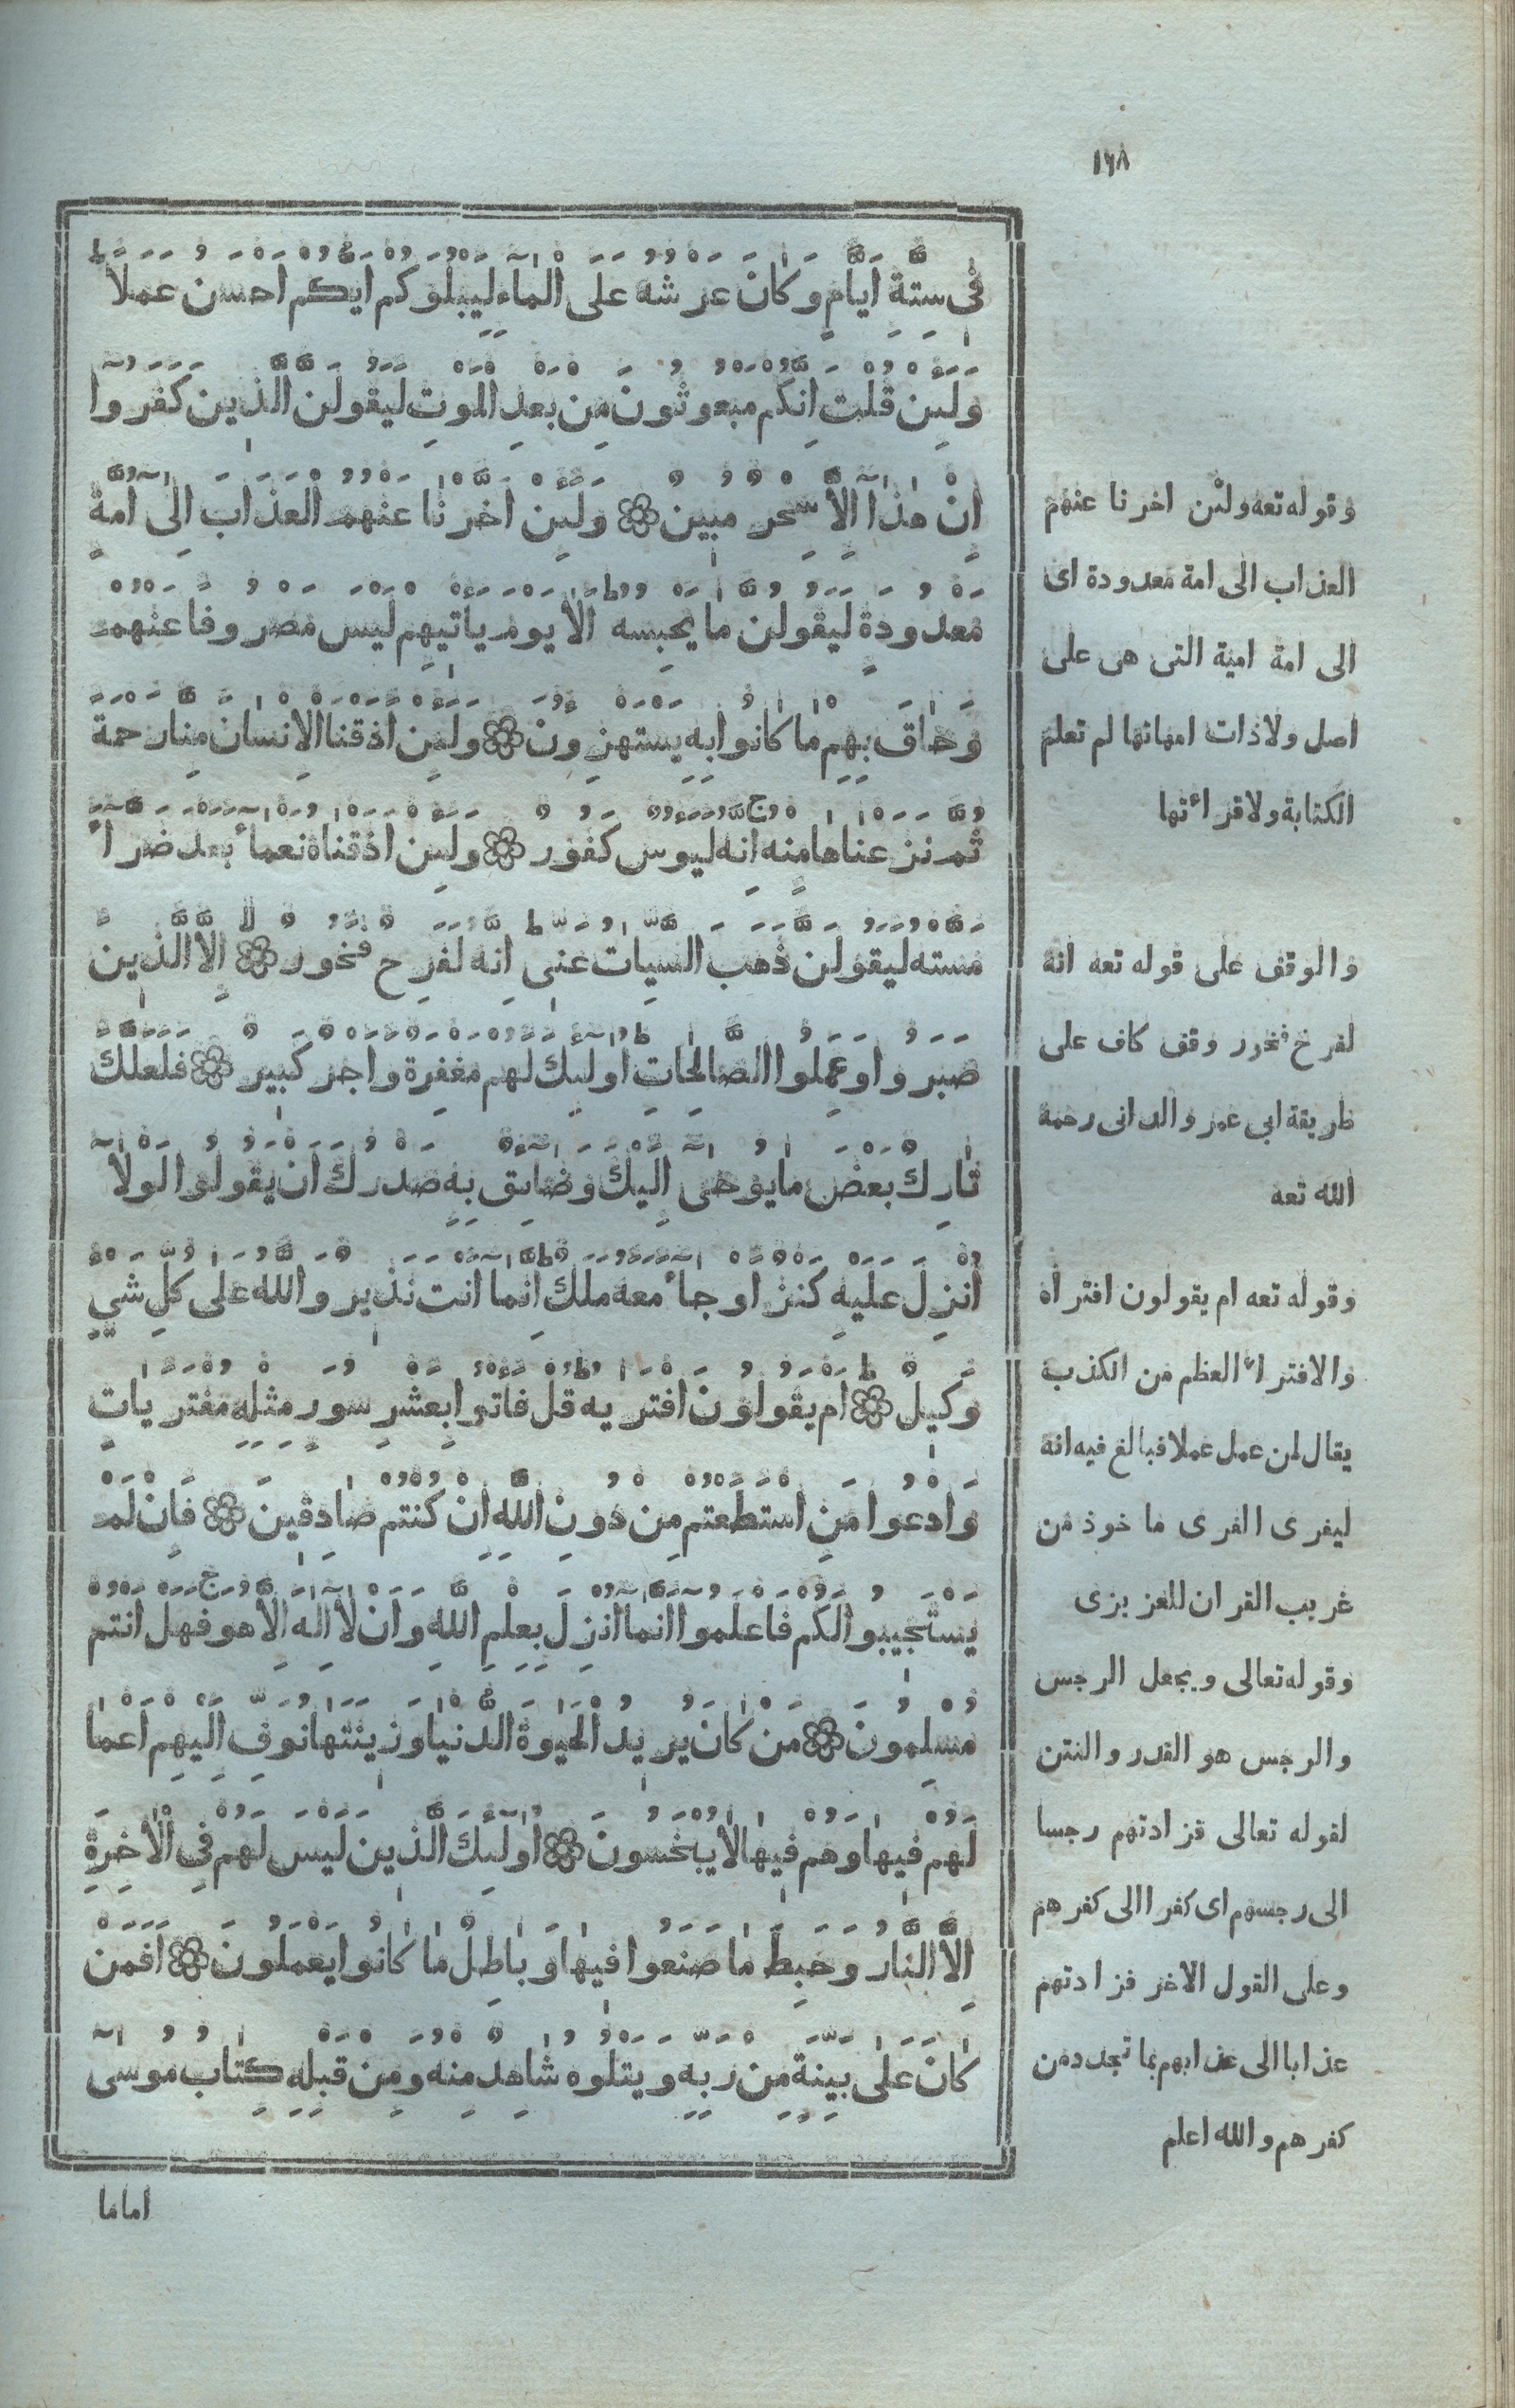 ١٦٨
فِي سِتَّةِ اَيَّامٍ وَكَانَ عَرْشُهُ عَلَى الْمَآءِ لِيَبْلُوَكُمْ اَيُّكُمْ اَحْسَنُ عَمَلًا
وَلَئِنْ قُلْتَ اِنَّكُمْ مَبْعُوثُونَ مِنْ بَعْدِ الْمَوْتِ لَيَقُولَنَّ الَّذِينَ كَفَرُوآ
اِنْ هٰذَآ اِلَّا سِحْرٌ مُبِينٌ وَلَئِنْ اَخَّرْنَا عَنْهُمُ الْعَذَابَ اِلٰٓى اُمَّةٍ
مَعْدُودَةٍ لَيَقُولُنَّ مَا يَحْبِسُهُ اَلَا يَوْمَ يَاْتِيهِمْ لَيْسَ مَصْرُوفًا عَنْهُمْ
وَحَاقَ بِهِمْ مَا كَانُوا بِهِ يَسْتَهْزِؤُنَ وَلَئِنْ اَذَقْنَا الْاِنْسَانَ مِنَّا رَحْمَةً
ثُمَّ نَزَعْنَاهَا مِنْهُ اِنَّهُ لَيَؤُسٌ كَفُورٌ وَلَئِنْ اَذَقْنَاهُ نَعْمَآءَ بَعْدَ ضَرَّآءَ
مَسَّتْهُ لَيَقُولَنَّ ذَهَبَ السَّيِّاٰتُ عَنِّى اِنَّهُ لَفَرِحٌ فَخُورٌ اِلَّا الَّذِينَ
صَبَرُوا وَعَمِلُوا الصَّالِحَاتِ اُولٰٓئِكَ لَهُمْ مَغْفِرَةٌ وَاَجْرٌ كَبِيرٌ فَلَعَلَّكَ
تَارِكٌ بَعْضَ مَا يُوحٰٓى اِلَيْكَ وَضَآئِقٌ بِهِ صَدْرُكَ اَنْ يَقُولُوا لَوْلَآ
اُنْزِلَ عَلَيْهِ كَنْزٌ اَوْ جَآءَ مَعَهُ مَلَكٌ اِنَّمَآ اَنْتَ نَذِيرٌ وَاللّٰهُ عَلٰى كُلِّ شَيْءٍ
وَكِيلٌ اَمْ يَقُولُونَ افْتَرٰيهُ قُلْ فَاْتُوا بِعَشْرِ سُوَرٍ مِثْلِهِ مُفْتَرَيَاتٍ
وَادْعُوا مَنِ اسْتَطَعْتُمْ مِنْ دُونِ اللّٰهِ اِنْ كُنْتُمْ صَادِقِينَ فَاِنْ لَمْ
يَسْتَجِيبُوا لَكُمْ فَاعْلَمُوآ اَنَّمَآ اُنْزِلَ بِعِلْمِ اللّٰهِ وَاَنْ لَآ اِلٰهَ اِلَّا هُوَ فَهَلْ اَنْتُمْ
مُسْلِمُونَ مَنْ كَانَ يُرِيدُ الْحَيٰوةَ الدُّنْيَا وَزِينَتَهَا نُوَفِّ اِلَيْهِمْ اَعْمَا
لَهُمْ فِيهَا وَهُمْ فِيهَا لَا يُبْخَسُونَ اُولٰٓئِكَ الَّذِينَ لَيْسَ لَهُمْ فِي الْاٰخِرَةِ
اِلَّا النَّارُ وَحَبِطَ مَا صَنَعُوا فِيهَا وَبَاطِلٌ مَا كَانُوا يَعْمَلُونَ اَفَمَنْ
كَانَ عَلٰى بَيِّنَةٍ مِنْ رَبِّهِ وَيَتْلُوهُ شَاهِدٌ مِنْهُ وَمِنْ قَبْلِهِ كِتَابُ مُوسٰٓى
اماما
وقوله تعه ولئن اخرنا عنهم
العذاب الى امة معدودة اى
الى امة امية التى هى على
اصل ولاذات امهاتها لم تعلم
الكتابة ولا قراءتها
والوقف على قوله تعه انه
لفرخ فخرر وقف كاف على
طريقة ابى عمرو الدانى رحمة
الله تعه
وقوله تعه ام يقولون افتراه
والافتراء العظم من الكذب
يقال لمن عمل عملا فبالغ فيه انه
ليفرى الفرى ما خوذ من
غريب القران للعزيزى
وقوله تعالى ويجعل الرجس
والرجس هو القدر والنتن
لقوله تعالى فزادتهم رجسا
الى رجسهم اى كفرا الى كفرهم
وعلى القول الاخر فزادتهم
عذابا الى عذابهم بما تجدد من
كفرهم والله اعلم